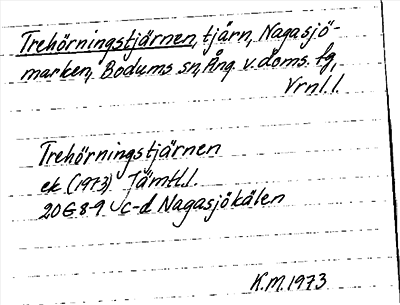 Trehörningstjärnen, tjärn, Nagasjö-
marken, Bodums sn, Ång. v. doms. fg,
Vrnl. l.
Trehörningstjärnen
ek (1973) Jämtl. l.
20G 8-9 c-d Nagasjökälen
K.M. 1973